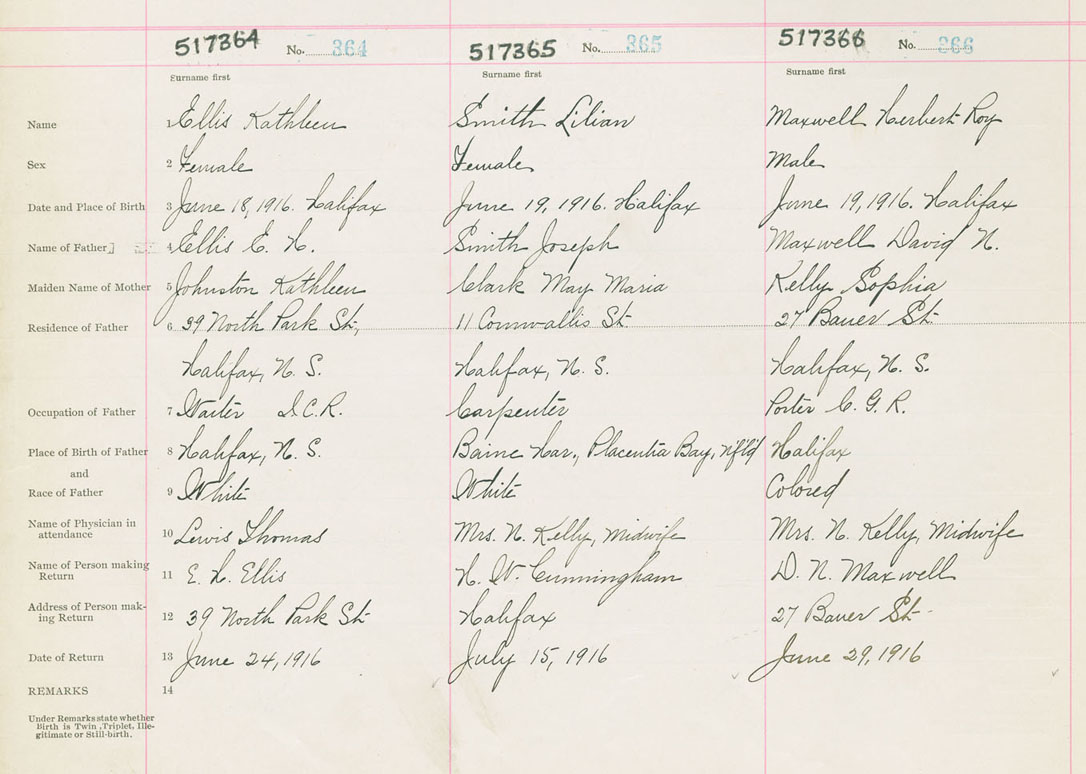 517364 No. 364 517365 No. 365 517366 No. 366
Surname first Surname first Surname first
Name 1 Ellis Kathleen Smith Lilian Maxwell Herbert Roy
Sex 2 Female Female Male
Date and Place of Birth 3 June 18, 1916. Halifax June 19, 1916. Halifax June 19, 1916. Halifax
Name of Father 4 Ellis E. H. Smith Joseph Maxwell David N.
Maiden Name of Mother 5 Johnston Kathleen Clark May Maria Kelly Sophia
Residence of Father 6 39 North Park St, 11 Cornwallis St. 27 Bauer St.
Halifax, N. S. Halifax, N. S. Halifax, N. S.
Occupation of Father 7 Waiter I.C.R. Carpenter Porter C. G. R.
Place of Birth of Father 8 Halifax, N. S. Baine Har., Placentia Bay, Nfld Halifax
and
Race of Father 9 White White Colored
Name of Physician in
attendance 10 Lewis Thomas Mrs. N. Kelly, Midwife Mrs. N. Kelly, Midwife
Name of Person making
Return 11 E. H. Ellis H. W. Cunningham D. N. Maxwell
Address of Person mak-
ing Return 12 39 North Park St. Halifax 27 Bauer St.
Date of Return 13 June 24, 1916 July 15, 1916 June 29, 1916
REMARKS 14
Under Remarks state whether
Birth is Twin, Triplet, Ille-
gitimate or Still-birth.